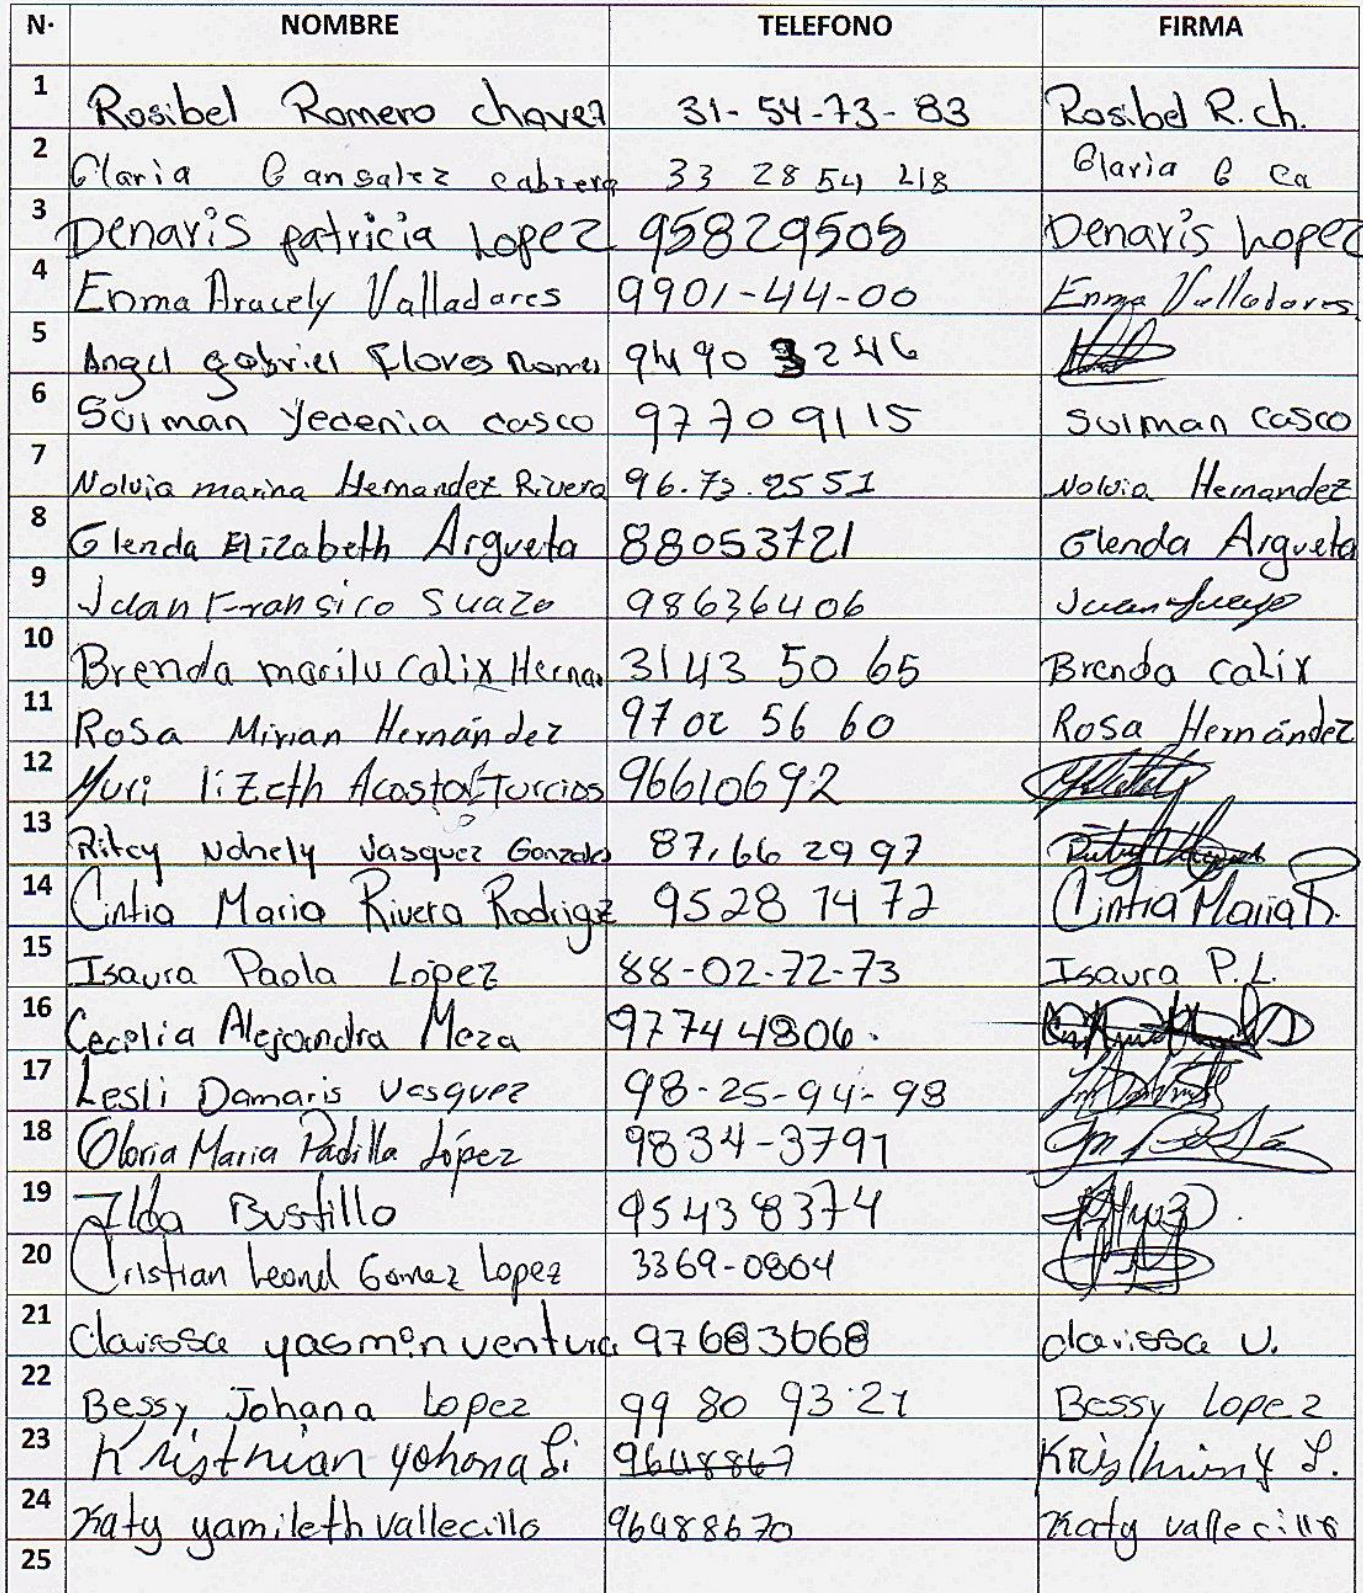 N· NOMBRE TELEFONO FIRMA
1 Rosibel Romero chavez 31-54-73-83 Rosibel R. ch.
2 Glaria Gansalez cabrera 33 28 54 48 Glaria G Ca
3 Denaris patricia Lopez 95829505 Denaris Lopez
4 Enma Aracely Valladares 9901-44-00 Enma Valladares
5 Angel gabriel Flores 9490 3246
6 Sulman Yecenia casco 97709115 Sulman Casco
7 Nolvia marina Hernandez Rivera 96.73.2551 Nolvia Hernandez
8 Glenda Elizabeth Argueta 88053721 Glenda Argueta
9 Juan Fransico Suazo 98636406 Juan Suazo
10 Brenda marilu Calix Hernan 3143 50 65 Brenda calix
11 Rosa Mirian Hernández 9702 56 60 Rosa Hernández
12 Yuri lizeth Acosta Turcios 96610692
13 Ritcy Nohely Vasquez Gonzales 87,66 29 97
14 Cintia Maria Rivera Rodrigz 9528 7472 Cintia Maria R.
15 Isaura Paola López 88-02-72-73 Isaura P.L.
16 Cecilia Alejandra Meza 97744806.
17 Lesli Damaris Vasquez 98-25-94-98
18 Gloria Maria Padilla López 9834-3791
19 Ilda Bustillo 95438374
20 Cristian Leonel Gomez Lopez 3369-0804
21 Clarissa yasmin ventura 97683668 clarissa V.
22 Bessy Johana Lopez 99 80 93·21 Bessy Lopez
23 Kristhian yohana L. 9648867 Kristhian Y L.
24 Katy yamileth vallecillo 96488670 Katy vallecillo
25